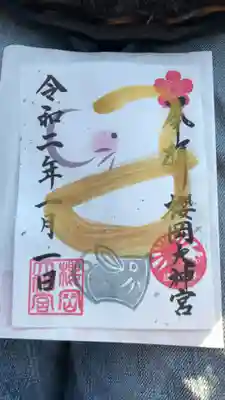 奉拝
櫻岡大神宮
令和二年一月一日
櫻岡
大神宮